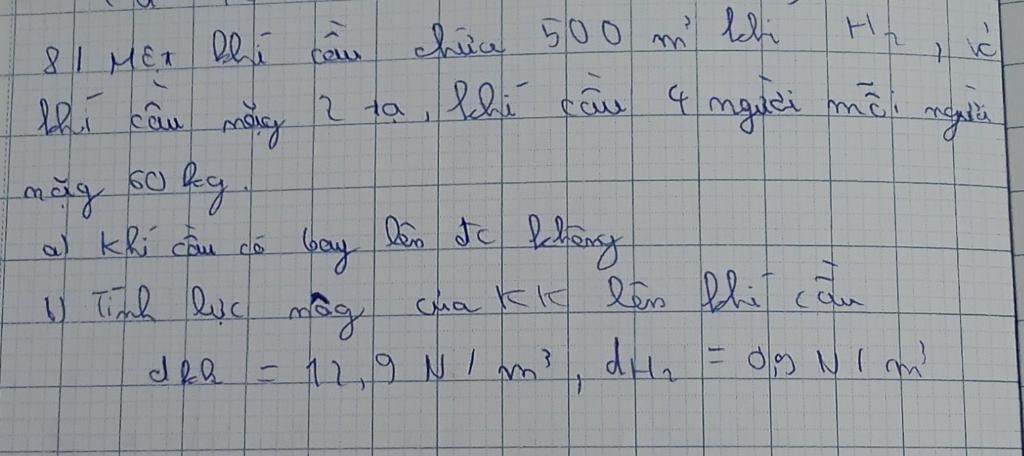 8/ Một khí cầu chứa 500 m³ khí H₂, vỏ
khí cầu nặng 2 tạ, khí cầu 4 người mỗi người
nặg 60 kg.
a) Khí cầu có bay lên đc không
b) Tính lực nâng của KK lên khí cầu
dkk = 12,9 N/m³, dH₂ = 0,9 N/m³